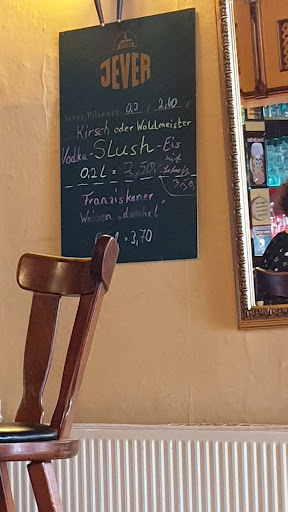 JEVER
Jever Pilsener 0,3 l 2,40 €
Kirsch oder Waldmeister
Vodka-Slush-Eis
0,2 L = 2,50 mit
3,50
Franziskaner
Weizen "dunkel"
l = 3,70